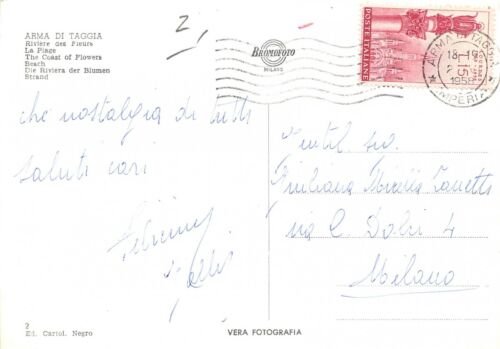 ARMA DI TAGGIA
Riviere des Fleurs
La Plage
The Coast of Flowers
Beach
Die Riviera der Blumen
Strand
2
BROMOFOTO
MILANO
POSTE ITALIANE
ARMA DI TAGGIA
18-19
15
1958
IMPERIA
che nostalgia di tutti
saluti cari
Gentil sig.
Giuliana Mirella Zanetti
via C. Dolci 4
Milano
2
Ed. Cartol. Negro
VERA FOTOGRAFIA